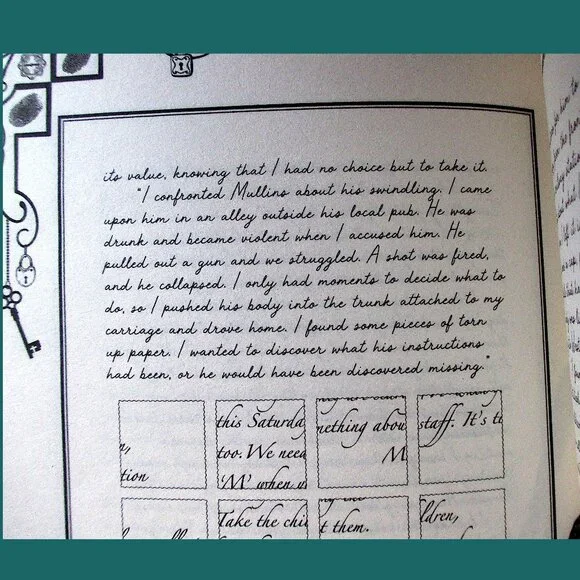 its value, knowing that I had no choice but to take it.
"I confronted Mullins about his swindling. I came
upon him in an alley outside his local pub. He was
drunk and became violent when I accused him. He
pulled out a gun and we struggled. A shot was fired,
and he collapsed. I only had moments to decide what to
do, so I pushed his body into the trunk attached to my
carriage and drove home. I found some pieces of torn
up paper. I wanted to discover what his instructions
had been, or he would have been discovered missing."
tion
this Saturda
too. We need
'M' when
mething abou
M
staff. It's t
Take the chi
t them.
ldren,